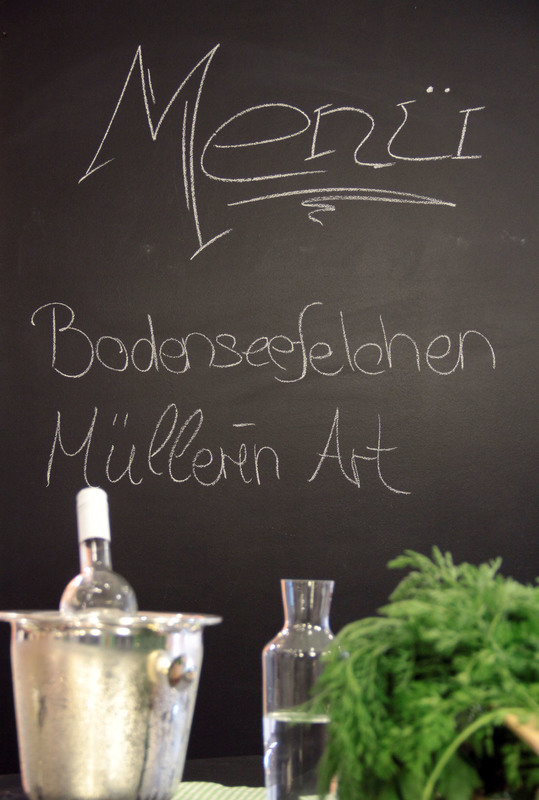 Menü
Bodenseefelchen
Müllerin Art